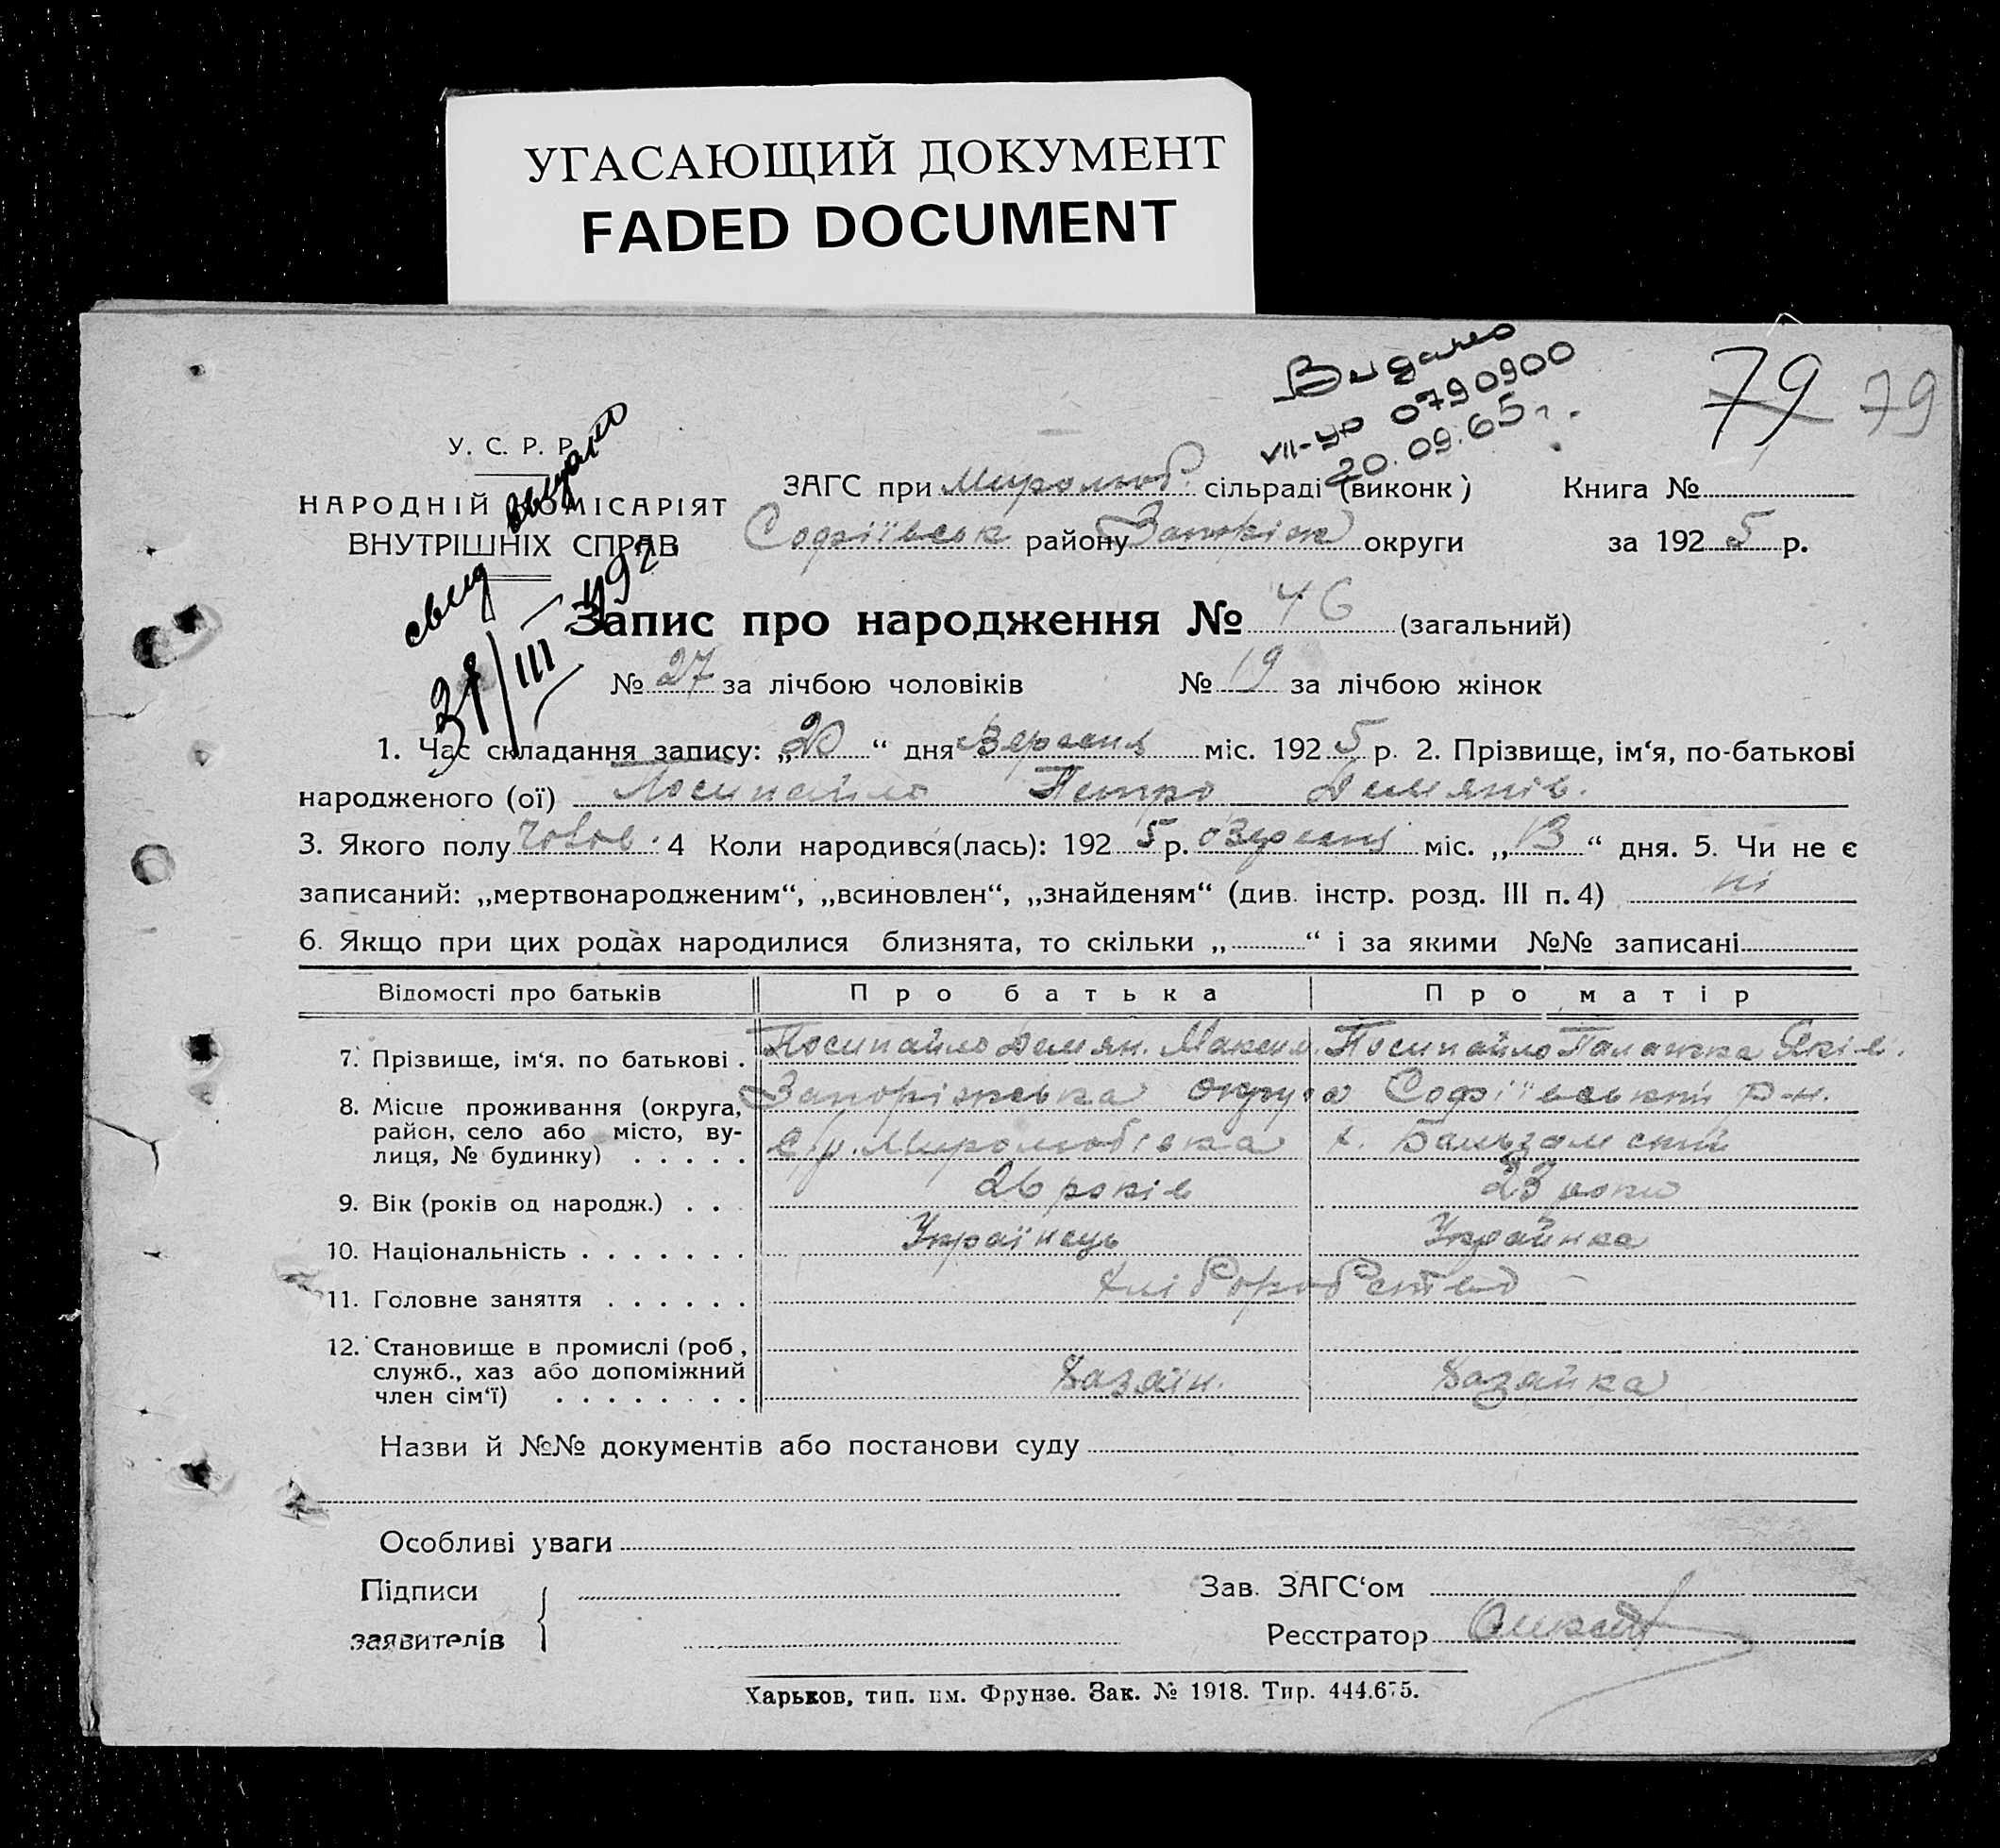 УГАСАЮЩИЙ ДОКУМЕНТ
FADED DOCUMENT
Видано
VII-ЯР 0790900
20.09.65 г.
79 79
У. С. Р. Р.
НАРОДНІЙ КОМІСАРІЯТ
ВНУТРІШНІХ СПРАВ
свид выдано
31/III
ЗАГС при Миролюб. сільраді (виконк)
Книга №
Софіївськ району Запоріж округи
за 1925 р.
Запис про народження № 46 (загальний)
№ 27 за лічбою чоловіків № 19 за лічбою жінок
1. Час складання запису: „20“ дня Вересня міс. 1925 р. 2. Прізвище, ім‘я, по-батькові
народженого (ої) Посипайло Петро Демянів.
3. Якого полу чолов. 4 Коли народився(лась): 1925 р. Вересня міс. „13“ дня. 5. Чи не є
записаний: „мертвонародженим“, „всиновлен“, „знайденям“ (див. інстр. розд. III п. 4) ні
6. Якщо при цих родах народилися близнята, то скільки „ “ і за якими №№ записані
Відомості про батьків Про батька Про матір
7. Прізвище, ім‘я. по батькові . Посипайло Демян. Максим. Посипайло Палажка Яків.
8. Місце проживання (округа, Запоріжська округа Софіївський р-н.
район, село або місто, ву- с/р. Миролюбівка х. Бальзамський
лиця, № будинку) . . . . .
9. Вік (років од народж.) . . 26 років 23 роки
10. Національність . . . . . . . Українець Українка
11. Головне заняття . . . . . . Хліборобство
12. Становище в промислі (роб ,
служб., хаз або допоміжний Хазяїн. Хазяйка
член сім‘ї) . . . . . . . .
Назви й №№ документів або постанови суду
Особливі уваги
Підписи Зав. ЗАГС‘ом
заявителів Реєстратор
Харьков, тип. им. Фрунзе. Зак. № 1918. Тир. 444.675.